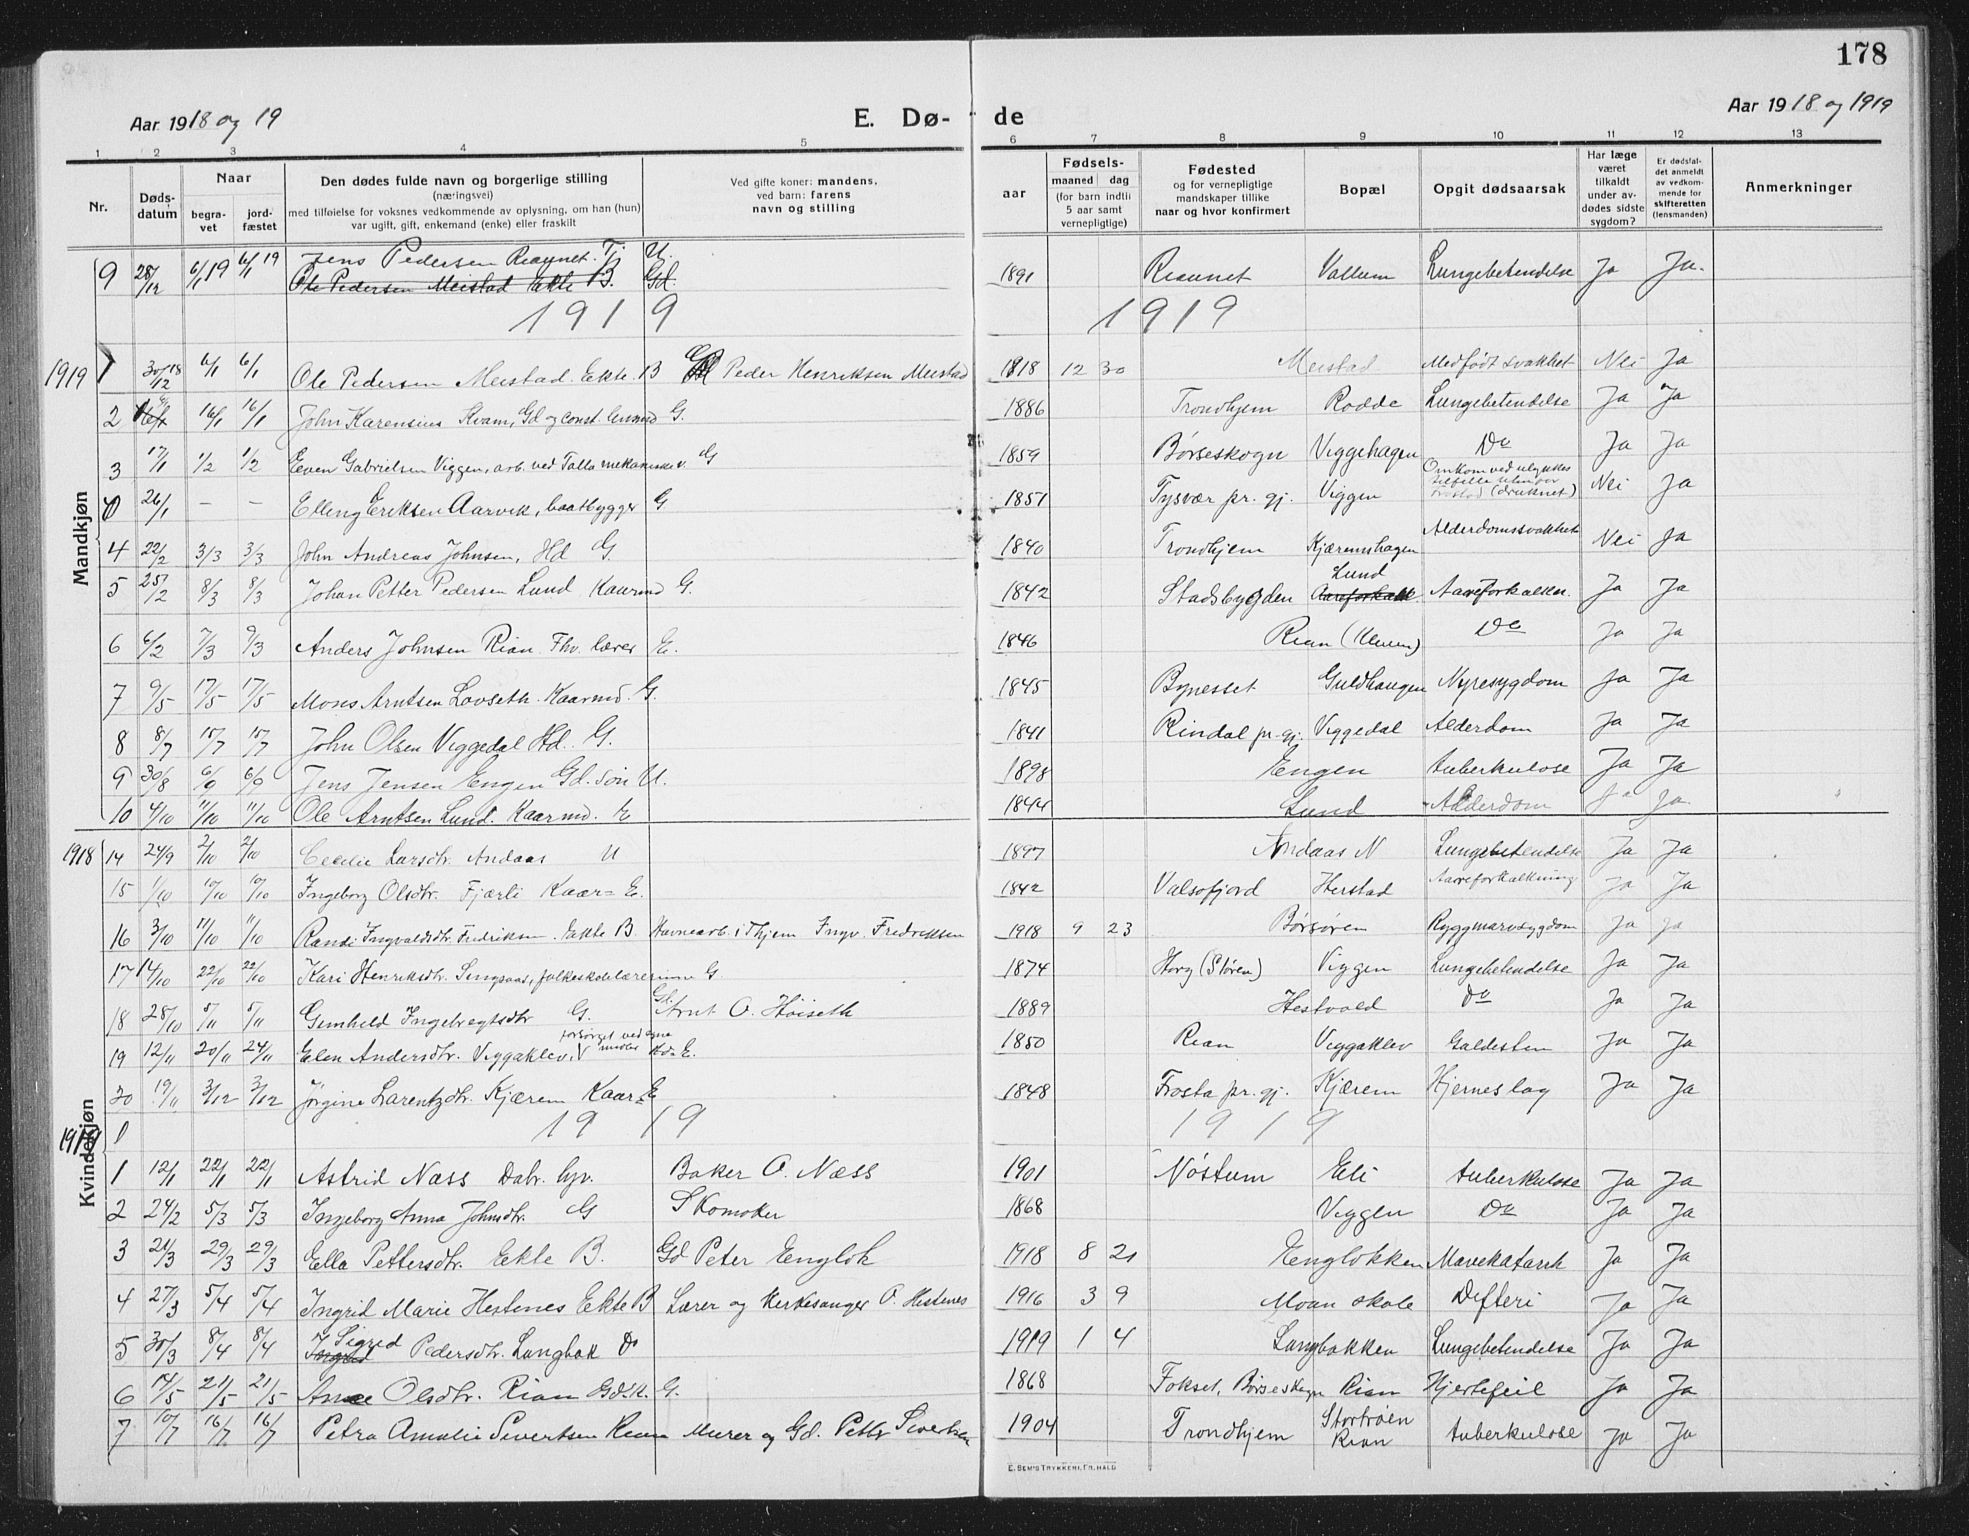 178
Aar 1918 og 19
E. Dø-
de
Aar 1918 og 1919
1 2 3 4 5 6 7 8 9 10 11 12 13
Nr.
Døds-
datum
Naar
begra-
vet
jord-
fæstet
Den dødes fulde navn og borgerlige stilling
(næringsvei)
med tilføielse for voksnes vedkommende av oplysning, om han (hun)
var ugift, gift, enkemand (enke) eller fraskilt
Ved gifte koner: mandens,
ved barn: farens
navn og stilling
aar
Fødsels-
maaned dag
(for barn indtil
5 aar samt
vernepligtige)
Fødested
og for vernepligtige
mandskaper tillike
naar og hvor konfirmert
Bopæl
Opgit dødsaarsak
Har læge
været
tilkaldt
under av-
dødes sidste
sygdom?
Er dødsfal-
det anmeldt
av vedkom-
mende for
skifteretten
(lensmanden)
Anmerkninger
Mandkjøn
9 28/12 6/1 19 6/1 19 Jens Pedersen Riaunet. Tj. U. 1891 Riaunet Vallum Lungebetendelse Ja Ja.
Ole Pedersen Meistad ekte B. Gd.
1919 1919
1919 1 30/12 18 6/1 6/1 Ole Pedersen Meistad. Ekte. B Peder Henriksen Meistad 1918 12 30 Meistad Medfödt svakhet Nei Ja
2 16/1 16/1 John Karensius Kvam, Gd og const. lensmd G. 1886 Trondhjem Rodde Lungebetendelse Ja Ja
3 17/1 1/2 1/2 Even Gabrielsen Viggen, arb. ved Talla mekaniske v. G 1859 Børseskogn Viggehagen Do Ja Ja
0 26/1 — — Elling Eriksen Aarvik, baatbygger G 1851 Tysvær pr. gj. Viggen Omkom ved ulykkes tilfelle (druknet) Nei Ja
4 22/2 3/3 3/3 John Andreas Johnsen, Hd G. 1840 Trondhjem Kjæremshagen Alderdomssvakhet Nei Ja
5 25/2 8/3 8/3 Johan Petter Pedersen Lund Kaarmd G. 1842 Stadsbygden Lund Aareforkalkn. Ja Ja
6 6/2 7/3 9/3 Anders Johnsen Rian Fhv. lærer E. 1846 Rian Do Ja Ja
7 9/5 17/5 17/5 Mons Arntsen Lovseth. Kaarmd. G. 1845 Bynesset Guldhaugen Nyresygdom Ja Ja
8 8/7 15/7 15/7 John Olsen Viggedal Hd. G. 1841 Rindal pr. gj. Viggedal Alderdom Ja Ja
9 30/8 6/9 6/9 Jens Jensen Engen Gd. søn U. 1898 Engen Tuberkulose Ja Ja
10 4/10 11/10 11/10 Ole Arntsen Lund. Kaarmd. E 1844 Lund Alderdom Ja Ja
Kvindekjøn
1918 14 24/9 2/10 2/10 Cecilie Larsdtr. Andaas U 1897 Andaas N Lungebetendelse Ja Ja
15 1/10 10/10 10/10 Ingeborg Olsdtr. Fjærli Kaar= E. 1842 Valsøfjord Herstad Aareforkalkning Ja Ja
16 3/10 11/10 11/10 Randi Ingvaldsdtr. Fredriksen. Ekte B Havnearb. i Thjem Ingv. Fredriksen 1918 9 23 Børsøren Ryggmarvsygdom Ja Ja
17 14/10 22/10 22/10 Kari Henriksdtr. Singsaas, folkeskolelærerinne G 1874 Horg (Støren) Viggen Lungebetendelse Ja Ja
18 28/10 5/11 5/11 Gunhild Ingebregtsdtr G. Gd. Arnt O. Höiseth 1889 Hestvold Do Ja Ja
19 12/11 20/11 24/11 Elen Andersdtr. Viggaklev, forsørget ved egne midler Hd. E. 1850 Rian Viggaklev Galdesten Ja Ja
20 19/11 3/12 3/12 Jørgine Larentzdtr. Kjærem Kaar= E 1848 Frosta pr. gj. Kjærem Hjerneslag Ja Ja
1919 1919
1919
1 12/1 22/1 22/1 Astrid Næss Baker O. Næss 1901 Nöstum Eli Tuberkulose Ja Ja
2 24/2 5/3 5/3 Ingeborg Anna Johnsdtr. G Skomaker 1868 Viggen Do Ja Ja
3 21/3 29/3 29/3 Ella Pettersdtr. Ekte B. Gd Peter Englök 1918 8 21 Englökken Mavekatarrh Ja Ja
4 27/3 5/4 5/4 Ingrid Marie Hestenes Ekte B Lærer og Kirkesanger O. Hestenes 1916 3 9 Moan skole Difteri Ja Ja
5 30/3 8/4 8/4 Sigrid Pedersdtr. Langbak Do 1919 1 4 Langbakken Lungebetendelse Ja Ja
6 14/5 21/5 21/5 Ane Olsdtr. Rian Gd.k. G. 1868 Fokset, Börseskogn Rian Hjertefeil Ja Ja
7 10/7 16/7 16/7 Petra Amalie Sivertsen Rian Murer og Gd. Petter Sivertsen 1904 Trondhjem Stortröen Rian Tuberkulose Ja Ja
E. SEM'S TRYKKERI, FR.HALD